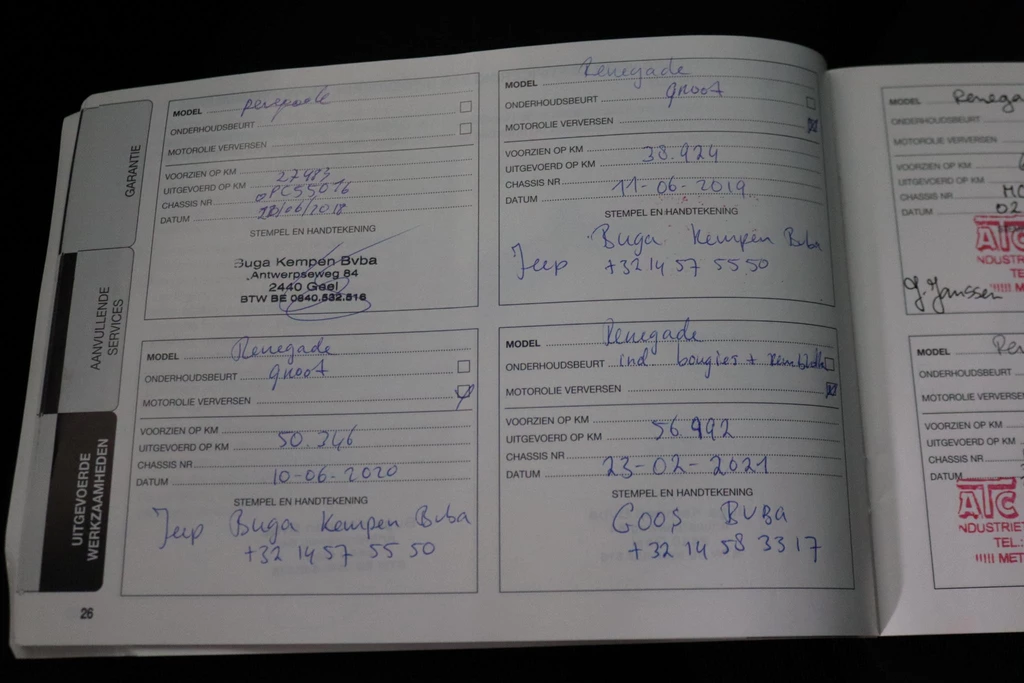 GARANTIE
AANVULLENDE
SERVICES
UITGEVOERDE
WERKZAAMHEDEN
MODEL
ONDERHOUDSBEURT
MOTOROLIE VERVERSEN
VOORZIEN OP KM
UITGEVOERD OP KM 27483
CHASSIS NR PC55016
DATUM /06/2018
STEMPEL EN HANDTEKENING
Buga Kempen Bvba
Antwerpseweg 84
2440 Geel
BTW BE 0840.532.516
MODEL Renegade
ONDERHOUDSBEURT groot
MOTOROLIE VERVERSEN
VOORZIEN OP KM
UITGEVOERD OP KM 38.924
CHASSIS NR
DATUM 11-06-2019
STEMPEL EN HANDTEKENING
Jeep Buga Kempen Bvba
+32 14 57 55 50
MODEL Renegade
ONDERHOUDSBEURT groot
MOTOROLIE VERVERSEN
VOORZIEN OP KM
UITGEVOERD OP KM 50.346
CHASSIS NR
DATUM 10-06-2020
STEMPEL EN HANDTEKENING
Jeep Buga Kempen Bvba
+32 14 57 55 50
MODEL Renegade
ONDERHOUDSBEURT incl bougies +
MOTOROLIE VERVERSEN
VOORZIEN OP KM
UITGEVOERD OP KM 56.992
CHASSIS NR
DATUM 23-02-2021
STEMPEL EN HANDTEKENING
GOOS BVBA
+32 14 58 33 17
26
MODEL Renega
ONDERHOUDSBEURT
MOTOROLIE VERVERSEN
VOORZIEN OP KM
UITGEVOERD OP KM
CHASSIS NR
DATUM 02
ATC
NDUSTR
TE
J. Janssen
MODEL Ren
ONDERHOUDSBEURT
MOTOROLIE VERVERSE
VOORZIEN OP KM
UITGEVOERD OP KM
CHASSIS NR
DATUM
ATC
NDUSTRIE
TEL.:
!!!!! MET